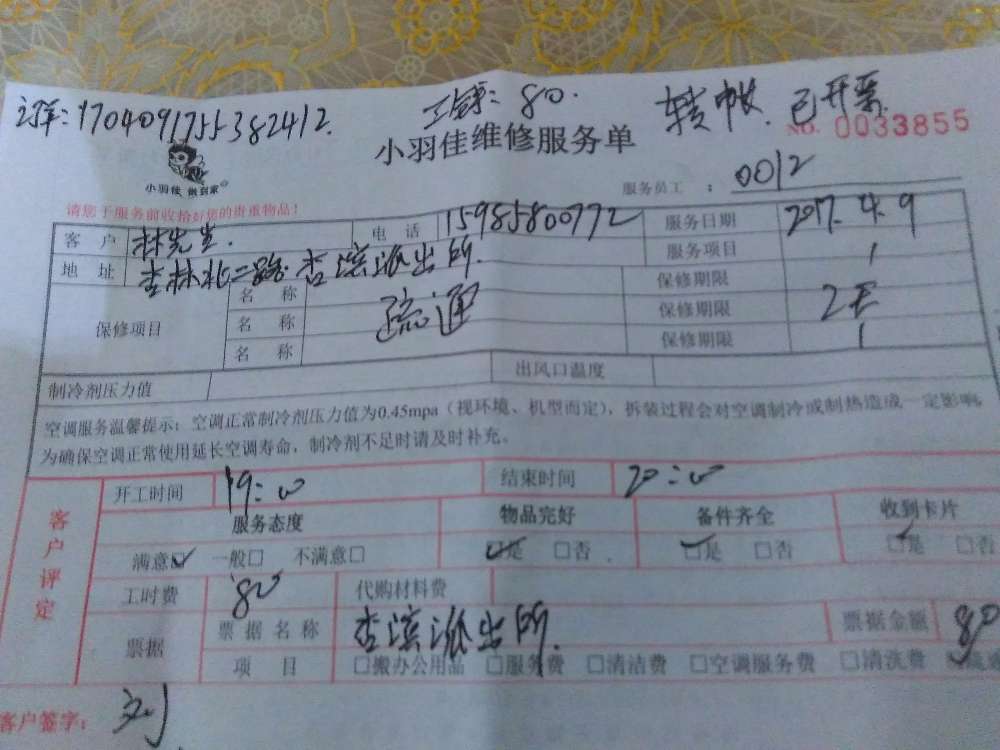 17040917553824​12. 80. 转帐. 已开票
小羽佳维修服务单 NO. 0033855
小羽佳 做到家
服务员工 : 0012
请您于服务前收拾好您的贵重物品!
客户 林先生. 电话 15985800772 服务日期 2017.4.9
服务项目 1
地址 杏林北二路杏滨派出所. 保修期限
保修项目 名称 疏通 保修期限
名称 保修期限
名称
制冷剂压力值 出风口温度
空调服务温馨提示:空调正常制冷剂压力值为0.45mpa(视环境、机型而定),拆装过程会对空调制冷或制热造成一定影响。
为确保空调正常使用延长空调寿命,制冷剂不足时请及时补充。
客户评定
开工时间 19:00 结束时间 20:00
服务态度 物品完好 备件齐全 收到卡片
满意☑ 一般□ 不满意□ ☑是 □否 ☑是 □否 ☑是 □否
工时费 80 代购材料费
票据 票据名称 杏滨派出所. 票据金额 80
项目 □搬办公用品 □服务费 □清洁费 □空调服务费 □清洗费
客户签字: 刘